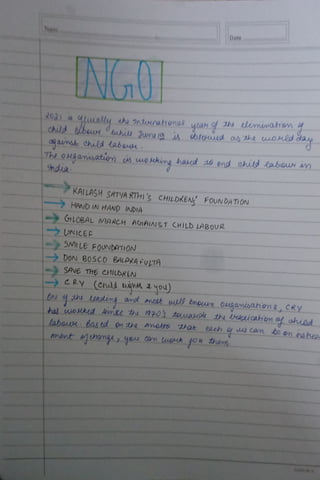 Name
Date
NGO
2021 is generally the International year of the elimination of
child labour while June 12 is observed as the world day
against child labour.
The organisation is working hard to end child labour in
India.
→ KAILASH SATYARTHI'S CHILDRENS' FOUNDATION
→ HAND IN HAND INDIA
→ GLOBAL MARCH AGAINST CHILD LABOUR
→ UNICEF
→ SMILE FOUNDATION
→ DON BOSCO BALAPRAFULTA
→ SAVE THE CHILDREN
→ CRY (Child rights & you)
One of the leading and most well known organisations, CRY
has worked since the 1970's towards the eradication of child
labour. Based on the motto that each of us can be an
ment of change, you can work for them.